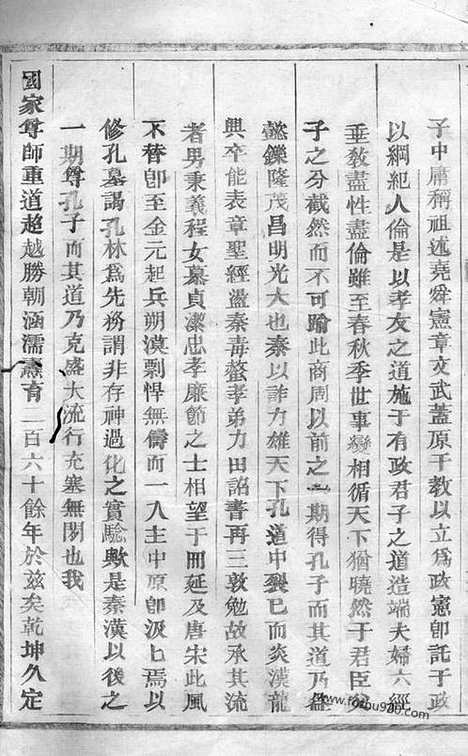 子中庸稱祖述堯舜憲章文武蓋原于教以立爲政憲卽託于政
以綱紀人倫是以孝友之道施于有政君子之道造端夫婦六經
垂敎盡性盡倫雖至春秋季世事變相循天下猶曉然于君臣父
子之分截然而不可踰此商周以前之一期得孔子而其道乃益
懿鑠隆茂昌明光大也秦以詐力雄天下孔道中裂已而炎漢龍
興卒能表章聖經盪秦毒螫孝弟力田詔書再三敦勉故承其流
者男秉義程女慕貞潔忠孝廉節之士相望于冊延及唐宋此風
不替卽至金元起兵朔漠剽悍無儔而一入主中原卽汲汲焉以
修孔墓謁孔林爲先務謂非存神過化之實驗歟是秦漢以後之
一期尊孔子而其道乃克盛大流行充塞無閒也我
國家尊師重道超越勝朝涵濡憙育二百六十餘年於兹矣乾坤久定
www.fozbu920.com